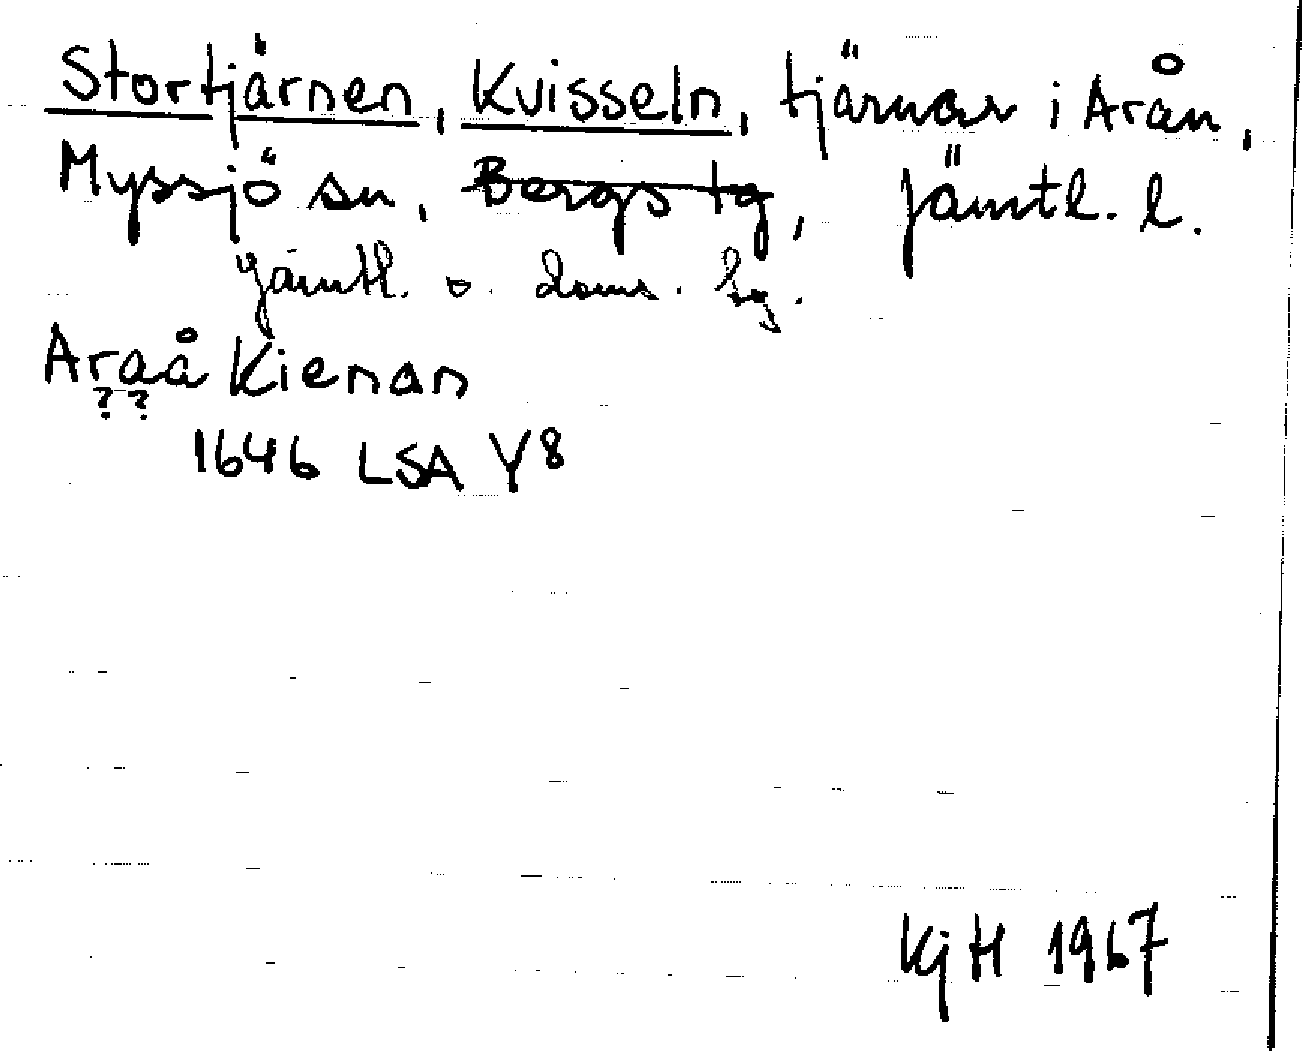 Stortjärnen, Kvisseln, tjärnar i Arån,
Myssjö sn, Bergs tg, Jämtl. l.
Jämtl. o. doms. lg.
Araå Kienan
? ?
1646 LSA Y8
KjH 1967